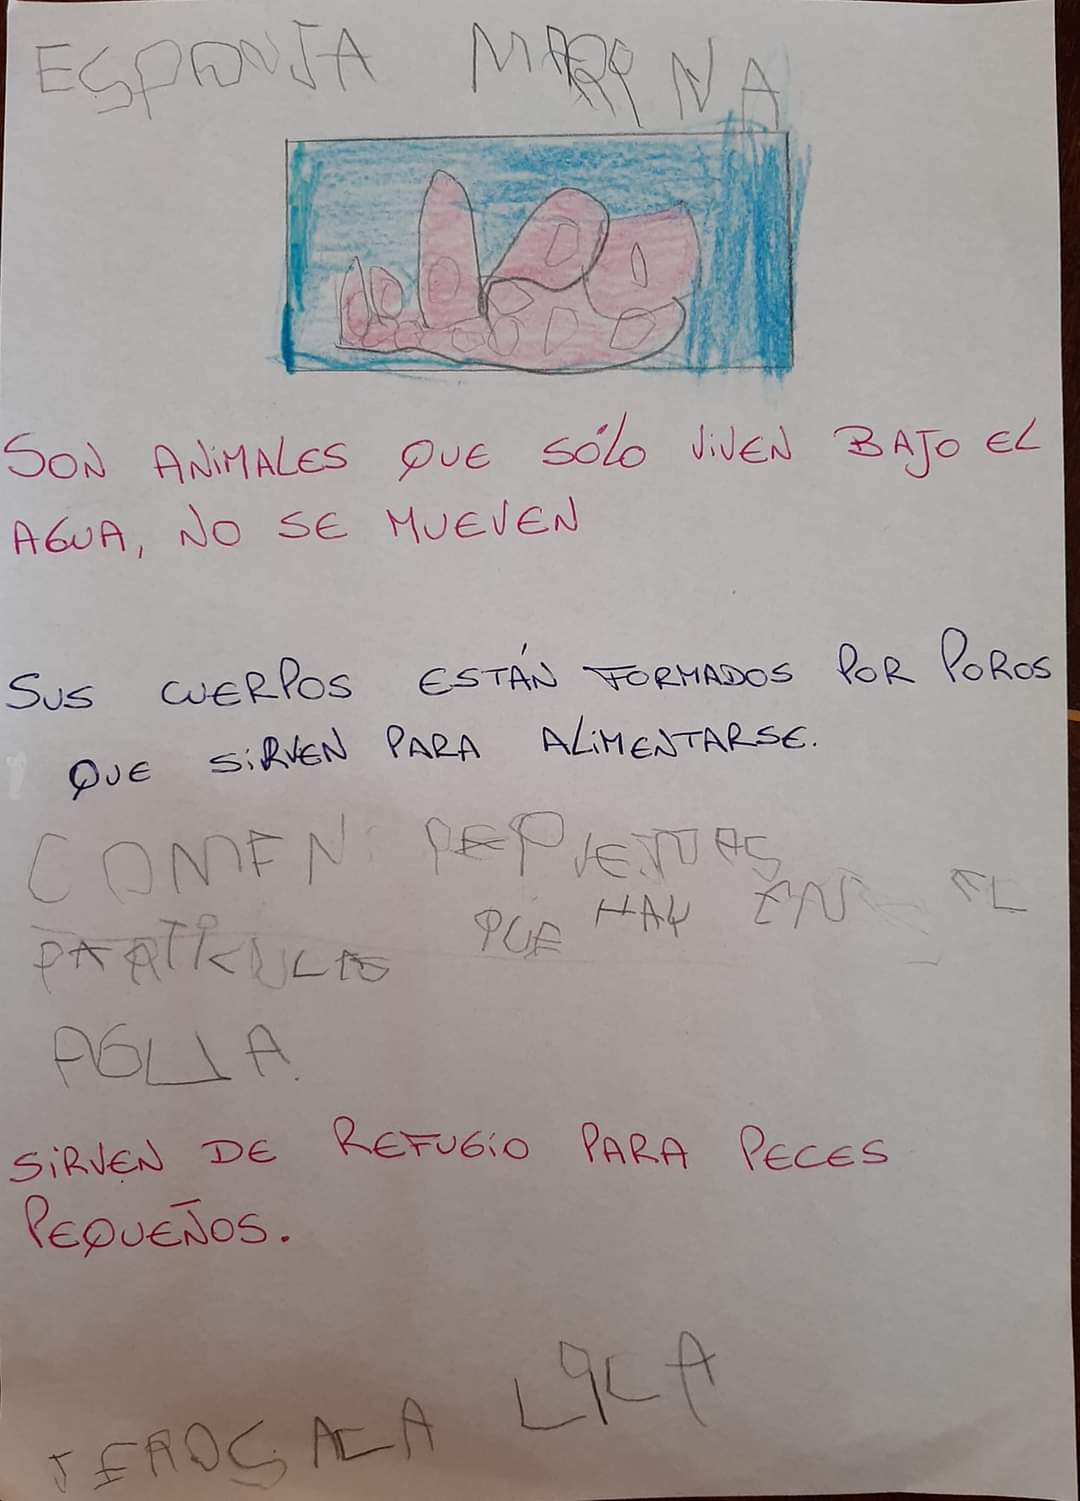 ESPONJA MARINA
SON ANIMALES QUE SÓLO VIVEN BAJO EL
AGUA, NO SE MUEVEN
SUS CUERPOS ESTÁN FORMADOS POR POROS
QUE SIRVEN PARA ALIMENTARSE.
COMEN
PARTÍCULAS QUE HAY EN EL
AGUA
SIRVEN DE REFUGIO PARA PECES
PEQUEÑOS.